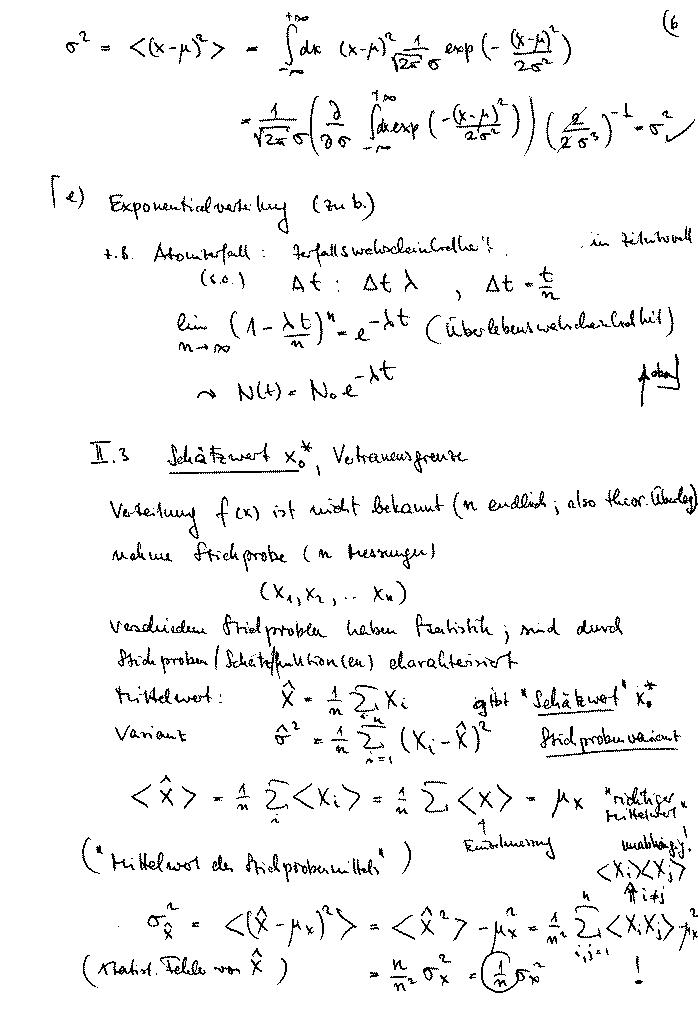 (6
σ² = <(x-μ)²> = ∫_{-∞}^{+∞} dx (x-μ)² 1/(√2π σ) exp(-(x-μ)²/2σ²)
= 1/(√2π σ) (∂/∂σ ∫_{-∞}^{+∞} dx exp(-(x-μ)²/2σ²)) (2/2σ³)^{-1} = σ² ✓
e) Exponentialverteilung (zu b.)
z.B. Atomzerfall: Zerfallswahrscheinlichkeit in Zeitintervall
(s.o.) Δt : Δt λ , Δt = t/n
lim_{n→∞} (1 - λt/n)^n = e^{-λt} (Überlebenswahrscheinlichkeit)
→ N(t) = N₀ e^{-λt}
II.3 Schätzwert x₀*, Vertrauensgrenze
Verteilung f(x) ist nicht bekannt (n endlich; also theor. Überleg)
nehme Stichprobe (n Messungen)
(x₁, x₂, .. xₙ)
verschiedene Stichproben haben Statistik; sind durch
Stichproben/Schätzfunktion(en) charakterisiert
Mittelwert: X̂ = 1/n Σ Xᵢ ergibt "Schätzwert" x₀*
Varianz σ̂² = 1/n Σ_{i=1}^{n} (Xᵢ - X̂)² Stichprobenvarianz
<X̂> = 1/n Σᵢ <Xᵢ> = 1/n Σ <X> = μₓ "richtiger Mittelwert"
↑ Einzelmessung unabhängig!
("Mittelwert des Stichprobenmittels") <Xᵢ><Xⱼ>
⇑ i≠j
σ²_X̂ = <(X̂-μₓ)²> = <X̂²> - μₓ² = 1/n² Σ_{i,j=1}^{n} <XᵢXⱼ> - μₓ²
(statist. Fehler von X̂) = n/n² σₓ² = 1/n σₓ² !